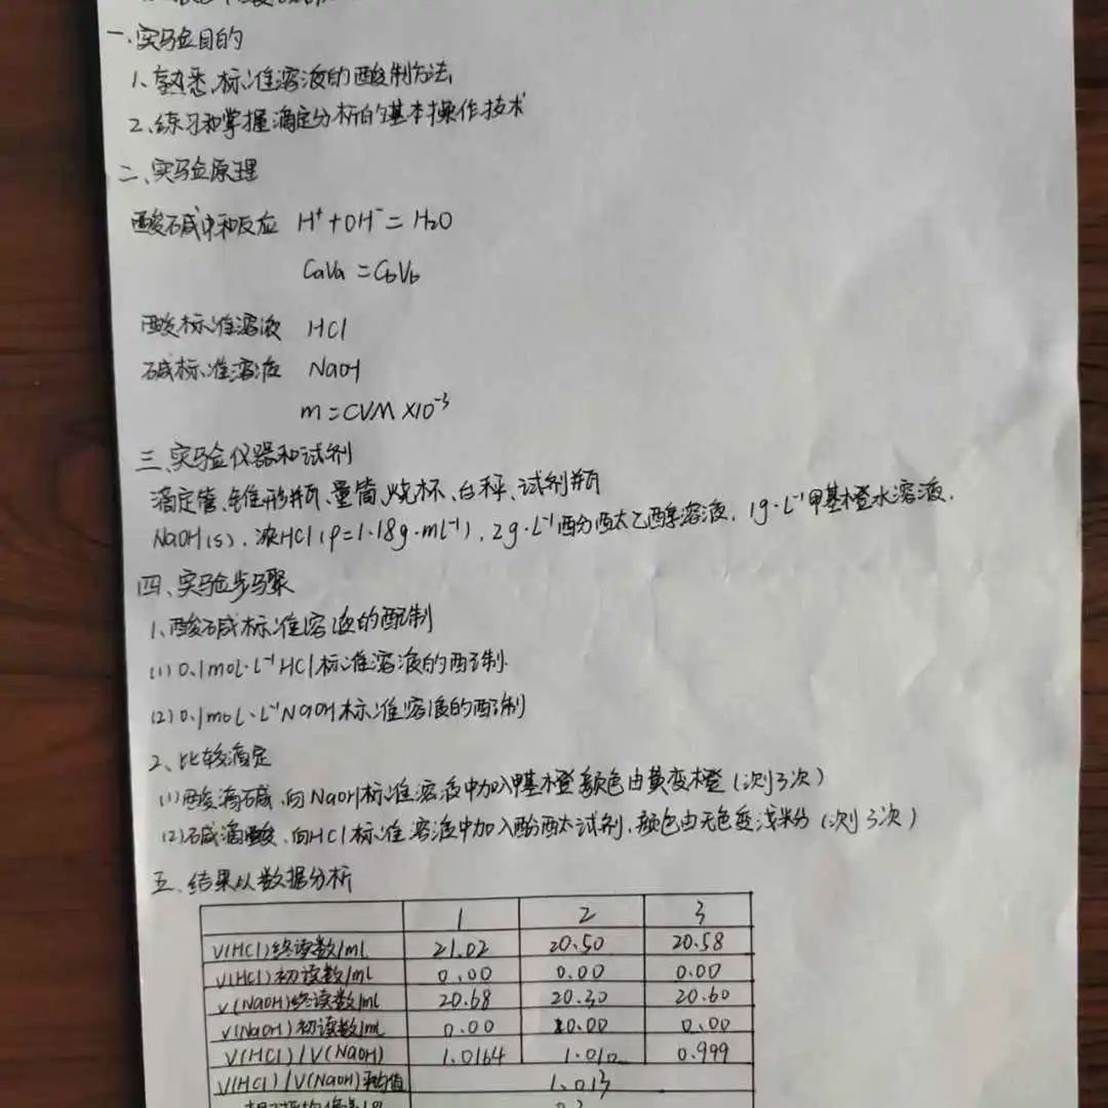 一、实验目的
1、熟悉标准溶液的酸制方法
2、练习和掌握滴定分析的基本操作技术
二、实验原理
酸碱中和反应 H⁺+OH⁻=H₂O
CaVa=CbVb
酸标准溶液 HCl
碱标准溶液 NaOH
m=CVM×10⁻³
三、实验仪器和试剂
滴定管、锥形瓶、量筒、烧杯、台秤、试剂瓶
NaOH(s)，浓HCl(ρ=1.18g·mL⁻¹)，2g·L⁻¹酚酞乙醇溶液，1g·L⁻¹甲基橙水溶液，
四、实验步骤
1、酸碱标准溶液的配制
(1)0.1mol·L⁻¹HCl标准溶液的配制
(2)0.1mol·L⁻¹NaOH标准溶液的配制
2、比较滴定
(1)酸滴碱，向NaOH标准溶液中加入甲基橙颜色由黄变橙(测3次)
(2)碱滴酸，向HCl标准溶液中加入酚酞试剂，颜色由无色变浅粉(测3次)
五、结果以数据分析
1 2 3
V(HCl)终读数/mL 21.02 20.50 20.58
V(HCl)初读数/mL 0.00 0.00 0.00
V(NaOH)终读数/mL 20.68 20.30 20.60
V(NaOH)初读数/mL 0.00 0.00 0.00
V(HCl)/V(NaOH) 1.0164 1.010 0.999
V(HCl)/V(NaOH)平均值 1.013